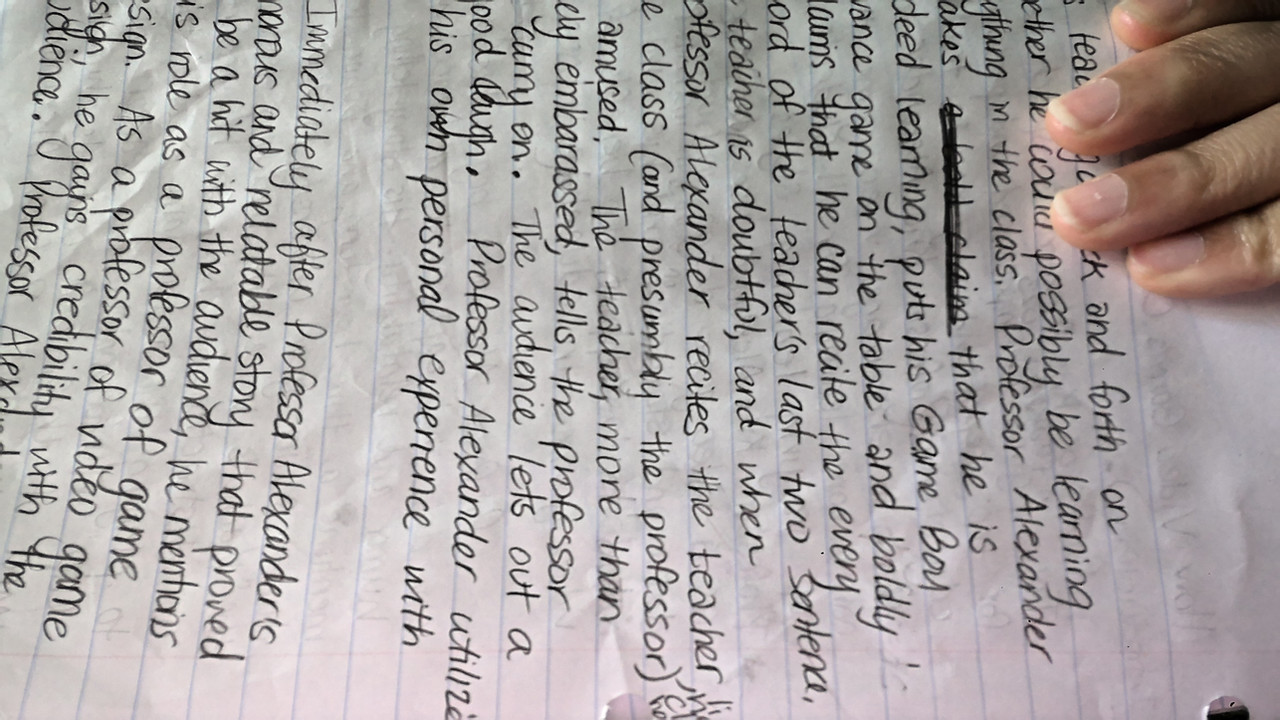 and forth on
he would possibly be learning
in the class. Professor Alexander
that he is
learning, puts his Game Boy
game on the table and boldly
that he can recite the every
of the teacher's last two sentence.
teacher is doubtful, and when
Alexander recites the teacher
class (and presumbly the professor)
amused. The teacher, more than
embarassed, tells the professor
carry on. The audience lets out a
laugh. Professor Alexander
his own personal experience with
Immediately after Professor Alexander's
and relatable story that proved
be a hit with the audience, he mentions
role as a professor of game
As a professor of video game
he gains credibility with the
Professor